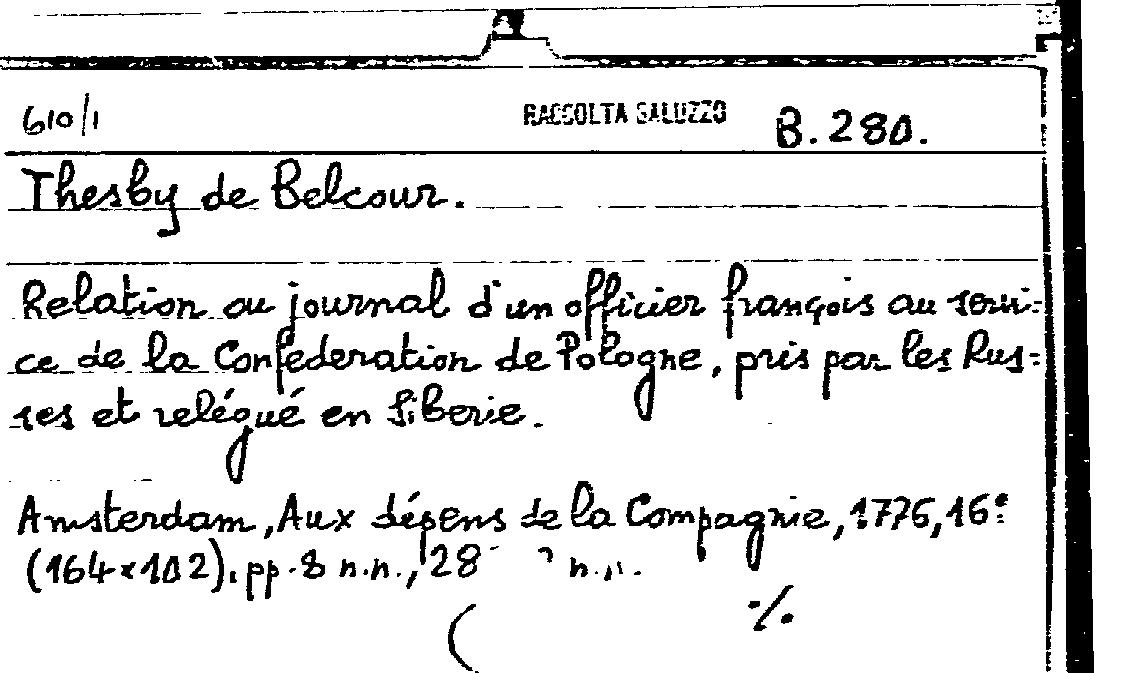 610/1 RACCOLTA SALUZZO B.280.
Thesby de Belcour.
Relation ou journal d'un officier françois au servi=
ce de la Confederation de Pologne, pris par les Rus=
ses et relégué en Siberie.
Amsterdam, Aux dépens de la Compagnie, 1776, 16°
(164x102), pp. 8 n.n., 28 n.n.
./.